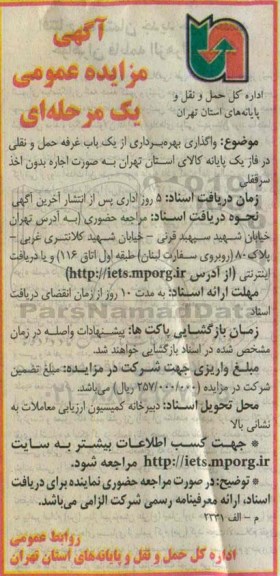 آگهی
مزایده عمومی
یک مرحله‌ای
اداره کل حمل و نقل و
پایانه‌های استان تهران
موضوع: واگذاری بهره‌برداری از یک باب غرفه حمل و نقلی
در فاز یک پایانه کالای استان تهران به صورت اجاره بدون اخذ
سرقفلی
زمان دریافت اسناد: ۵ روز اداری پس از انتشار آخرین آگهی
نحوه دریافت اسناد: مراجعه حضوری (به آدرس تهران
خیابان شهید سپهبد قرنی - خیابان شهید کلانتری غربی -
پلاک ۸۰ (روبروی سفارت لبنان) طبقه اول اتاق ۱۱۶) و یا دریافت
اینترنتی (از آدرس http://iets.mporg.ir)
مهلت ارائه اسناد: به مدت ۱۰ روز از زمان انقضای دریافت
اسناد
ParsNamadData
زمان بازگشایی پاکت ها: پیشنهادات واصله در زمان
مشخص شده در اسناد بازگشایی خواهند شد.
مبلغ واریزی جهت شرکت در مزایده: مبلغ تضمین
شرکت در مزایده (۲۵۷/۰۰۰/۰۰۰ ریال) می‌باشد.
محل تحویل اسناد: دبیرخانه کمیسیون ارزیابی معاملات به
نشانی بالا
* جهت کسب اطلاعات بیشتر به سایت
http://iets.mporg.ir مراجعه شود.
* توضیح: در صورت مراجعه حضوری نماینده برای دریافت
اسناد، ارائه معرفینامه رسمی شرکت الزامی می‌باشد.
م - الف ۲۲۳۱
روابط عمومی
اداره کل حمل و نقل و پایانه‌های استان تهران